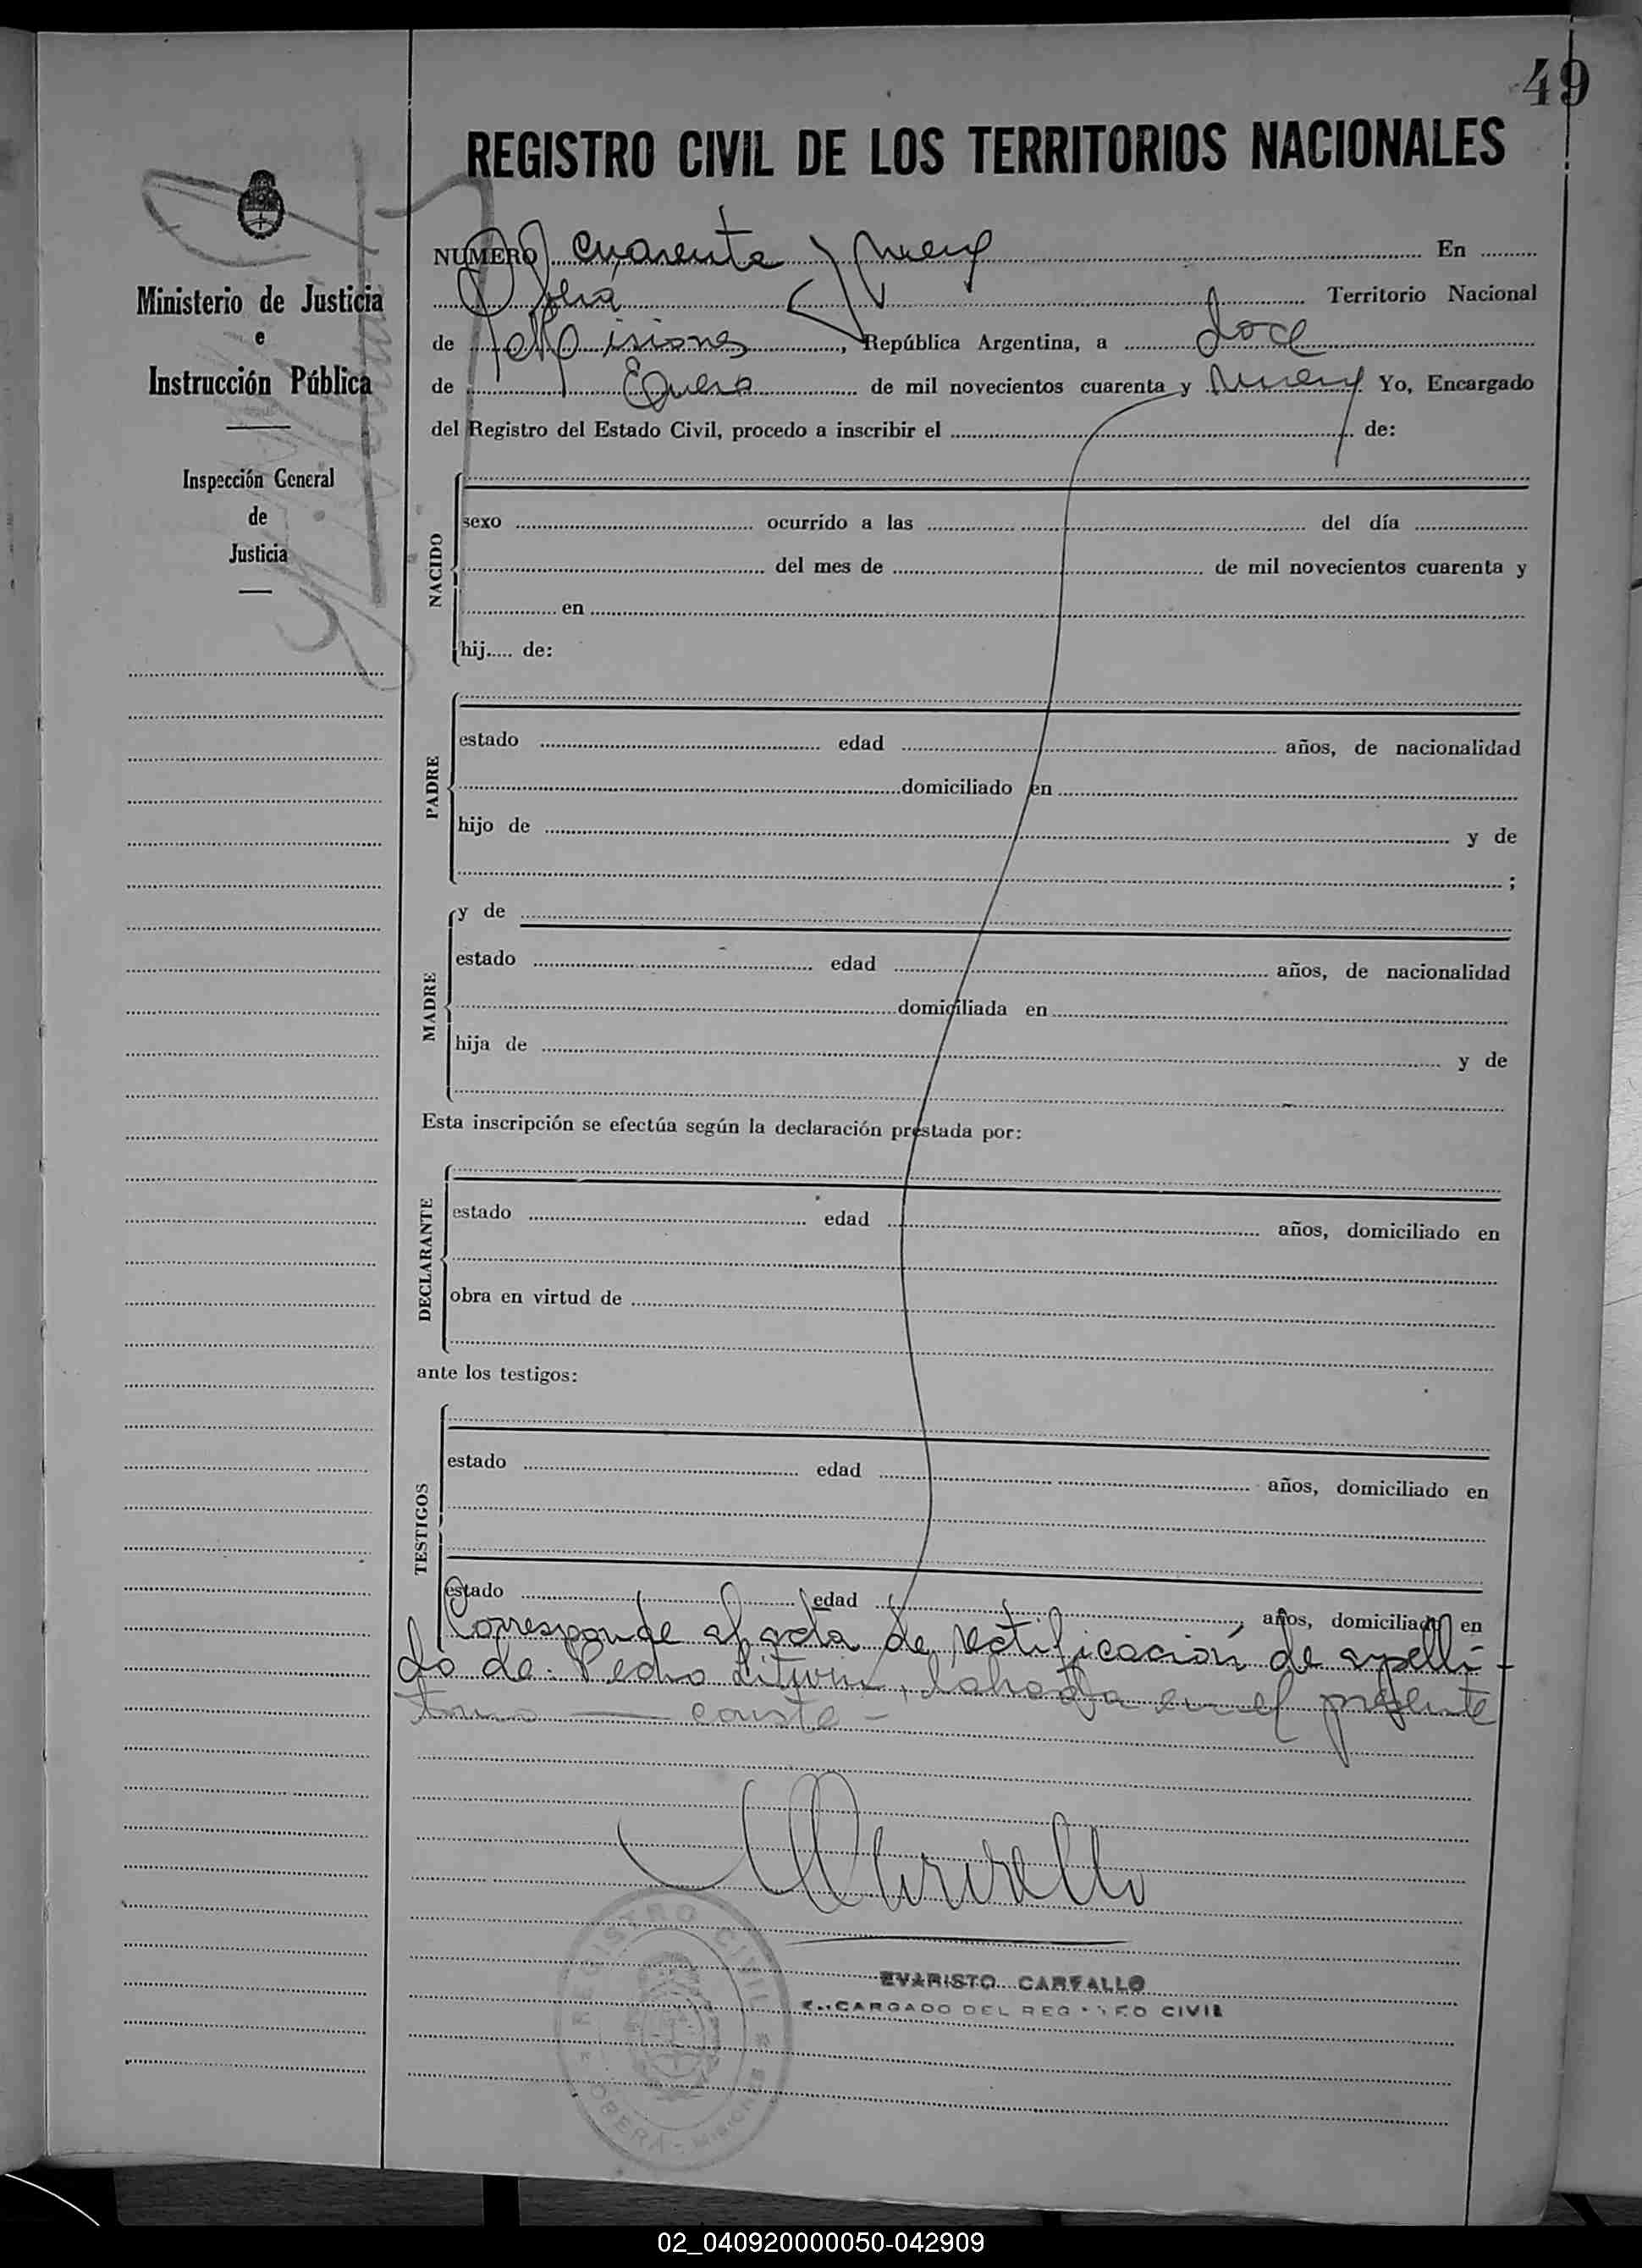 49
REGISTRO CIVIL DE LOS TERRITORIOS NACIONALES
Ministerio de Justicia
e
Instrucción Pública
Inspección General
de
Justicia
NUMERO cuarenta y nueve En
Oberá Territorio Nacional
de Misiones, República Argentina, a doce
de Enero de mil novecientos cuarenta y nueve Yo, Encargado
del Registro del Estado Civil, procedo a inscribir el de:
NACIDO
sexo ocurrido a las del día
del mes de de mil novecientos cuarenta y
en
hij..... de:
PADRE
estado edad años, de nacionalidad
domiciliado en
hijo de y de
;
MADRE
y de
estado edad años, de nacionalidad
domiciliada en
hija de y de
Esta inscripción se efectúa según la declaración prestada por:
DECLARANTE
estado edad años, domiciliado en
obra en virtud de
ante los testigos:
TESTIGOS
estado edad años, domiciliado en
estado edad años, domiciliado en
Corresponde al acta de rectificación de apelli-
do de Pedro Litwin, labrada en el presente
tomo — conste -
EVARISTO CARVALLO
ENCARGADO DEL REGISTRO CIVIL
REGISTRO CIVIL
OBERÁ - MISIONES
02_040920000050-042909